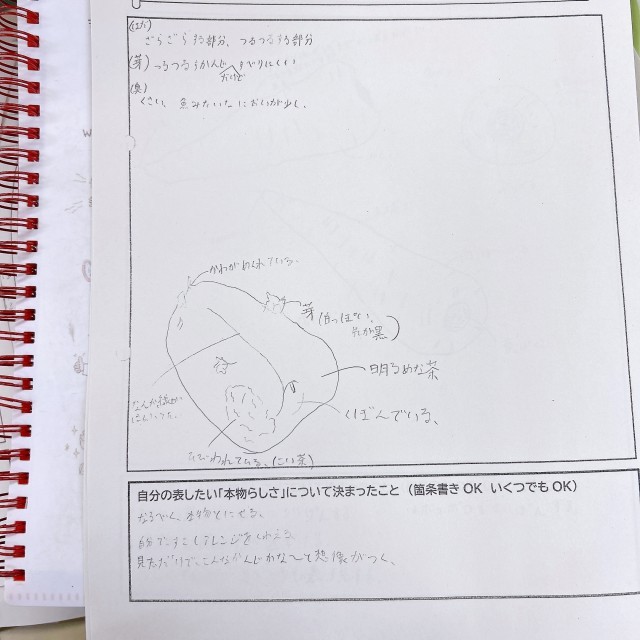 ざらざらする部分、つるつるする部分
(芽) つるつるなかんじ すべりにくい
だけど
(臭)
くさい、 魚みたいな においが少し。
かわがめくれている。
芽
先が黒)
明るめな茶
くぼんでいる。
なんか線が
はいってた。
ひびわれている。(こい茶)
自分の表したい「本物らしさ」について決まったこと (箇条書き OK いくつでも OK)
なるべく、本物とにせる。
自分で少しアレンジをくわえる
見ただけで、こんなかんじかな〜と想像がつく。